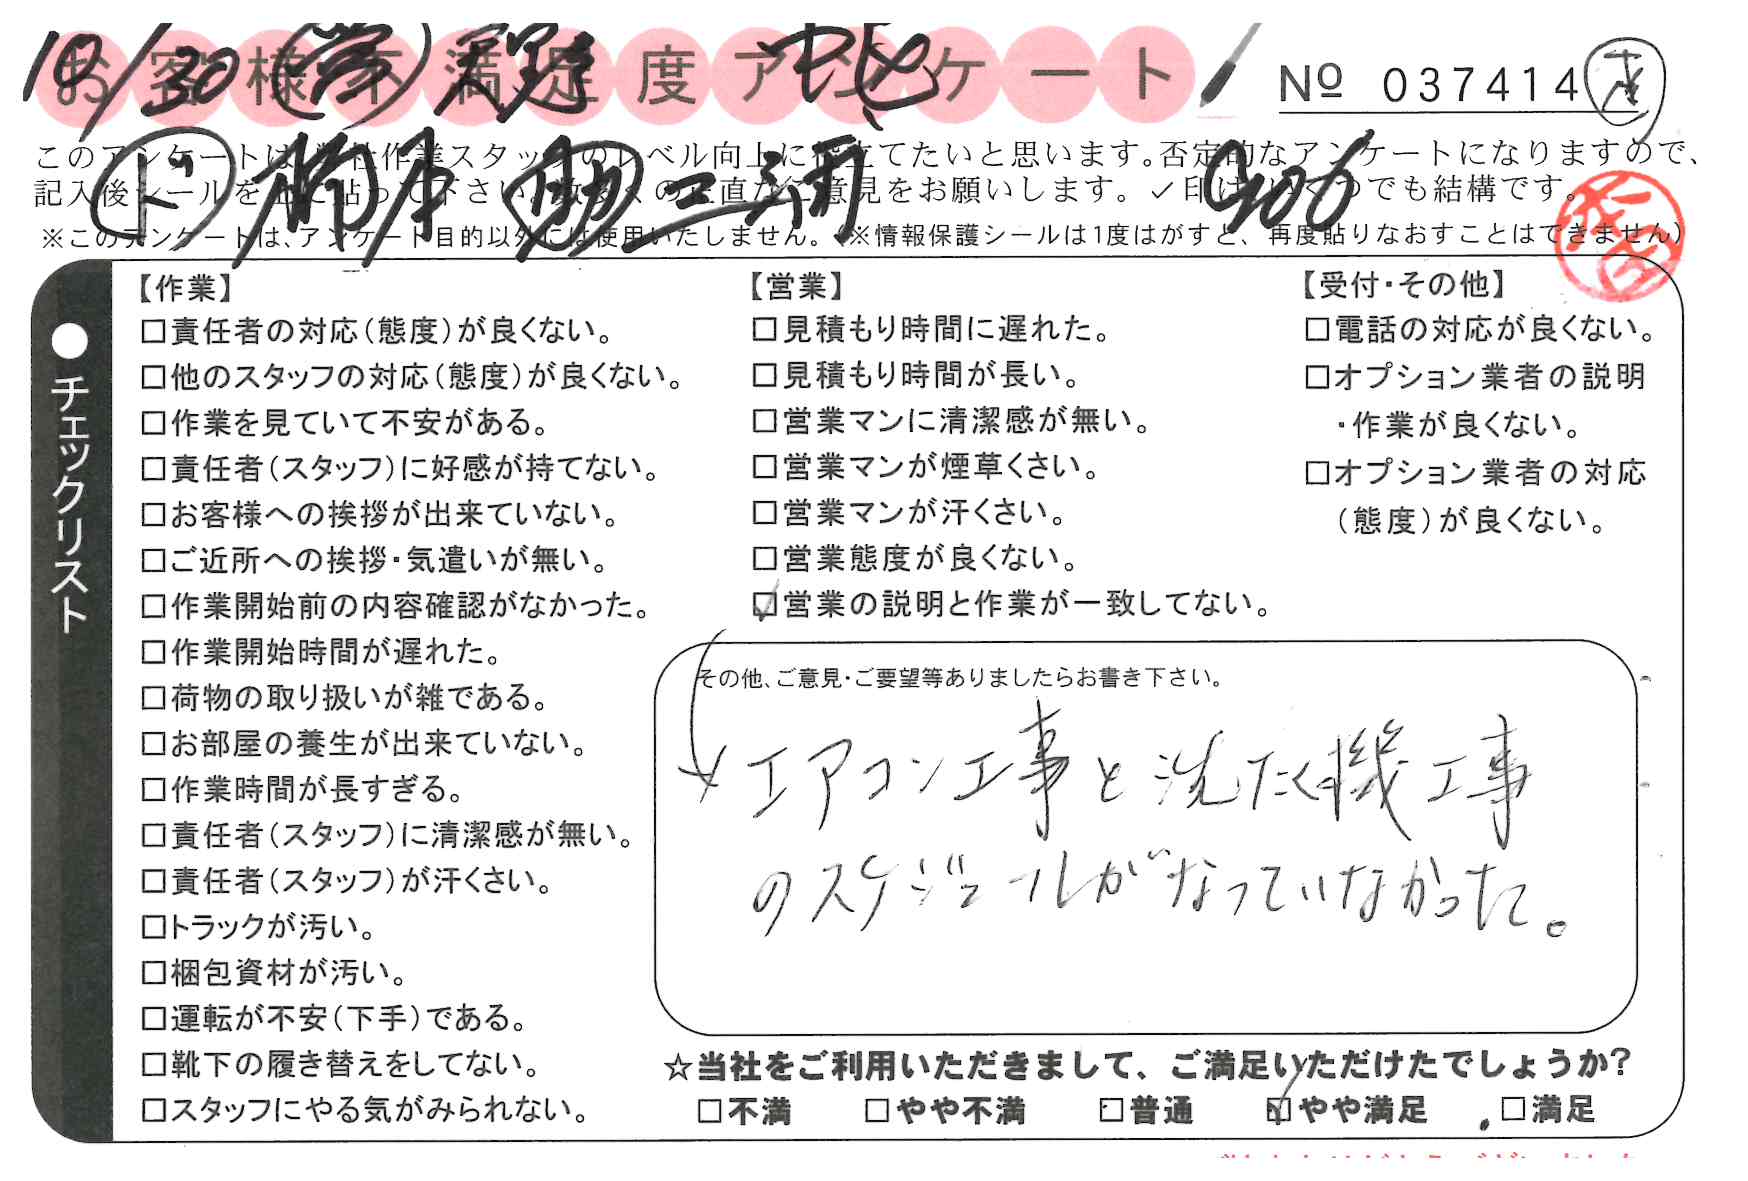 お客様不満足度アンケート
№ 037414
このアンケートは、弊社作業スタッフのレベル向上に役立てたいと思います。否定的なアンケートになりますので、
記入後シールを上に貼って下さい。数多くの正直なご意見をお願いします。✓印は、いくつでも結構です。
※このアンケートは、アンケート目的以外には使用いたしません。(※情報保護シールは1度はがすと、再度貼りなおすことはできません)
10/30
906
●チェックリスト
【作業】
□責任者の対応(態度)が良くない。
□他のスタッフの対応(態度)が良くない。
□作業を見ていて不安がある。
□責任者(スタッフ)に好感が持てない。
□お客様への挨拶が出来ていない。
□ご近所への挨拶・気遣いが無い。
□作業開始前の内容確認がなかった。
□作業開始時間が遅れた。
□荷物の取り扱いが雑である。
□お部屋の養生が出来ていない。
□作業時間が長すぎる。
□責任者(スタッフ)に清潔感が無い。
□責任者(スタッフ)が汗くさい。
□トラックが汚い。
□梱包資材が汚い。
□運転が不安(下手)である。
□靴下の履き替えをしてない。
□スタッフにやる気がみられない。
【営業】
□見積もり時間に遅れた。
□見積もり時間が長い。
□営業マンに清潔感が無い。
□営業マンが煙草くさい。
□営業マンが汗くさい。
□営業態度が良くない。
☑営業の説明と作業が一致してない。
【受付・その他】
□電話の対応が良くない。
□オプション業者の説明
・作業が良くない。
□オプション業者の対応
(態度)が良くない。
その他、ご意見・ご要望等ありましたらお書き下さい。
エアコン工事と洗たく機工事
のスケジュールがなっていなかった。
☆当社をご利用いただきまして、ご満足いただけたでしょうか?
□不満 □やや不満 □普通 ☑やや満足 □満足